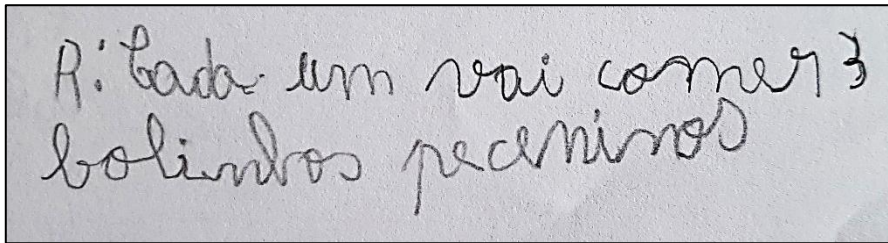 R: Cada um vai comer 3
bolinhos peceninos